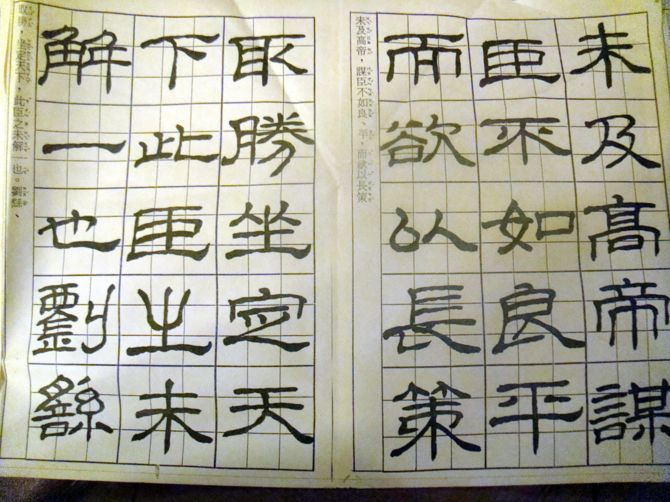 未及高帝謀
臣不如良平
而欲以長策
未及高帝，謀臣不如良、平，而欲以長策
取勝坐定天
下此臣之未
解一也劉繇
取勝，坐定天下，此臣之未解一也。劉繇、